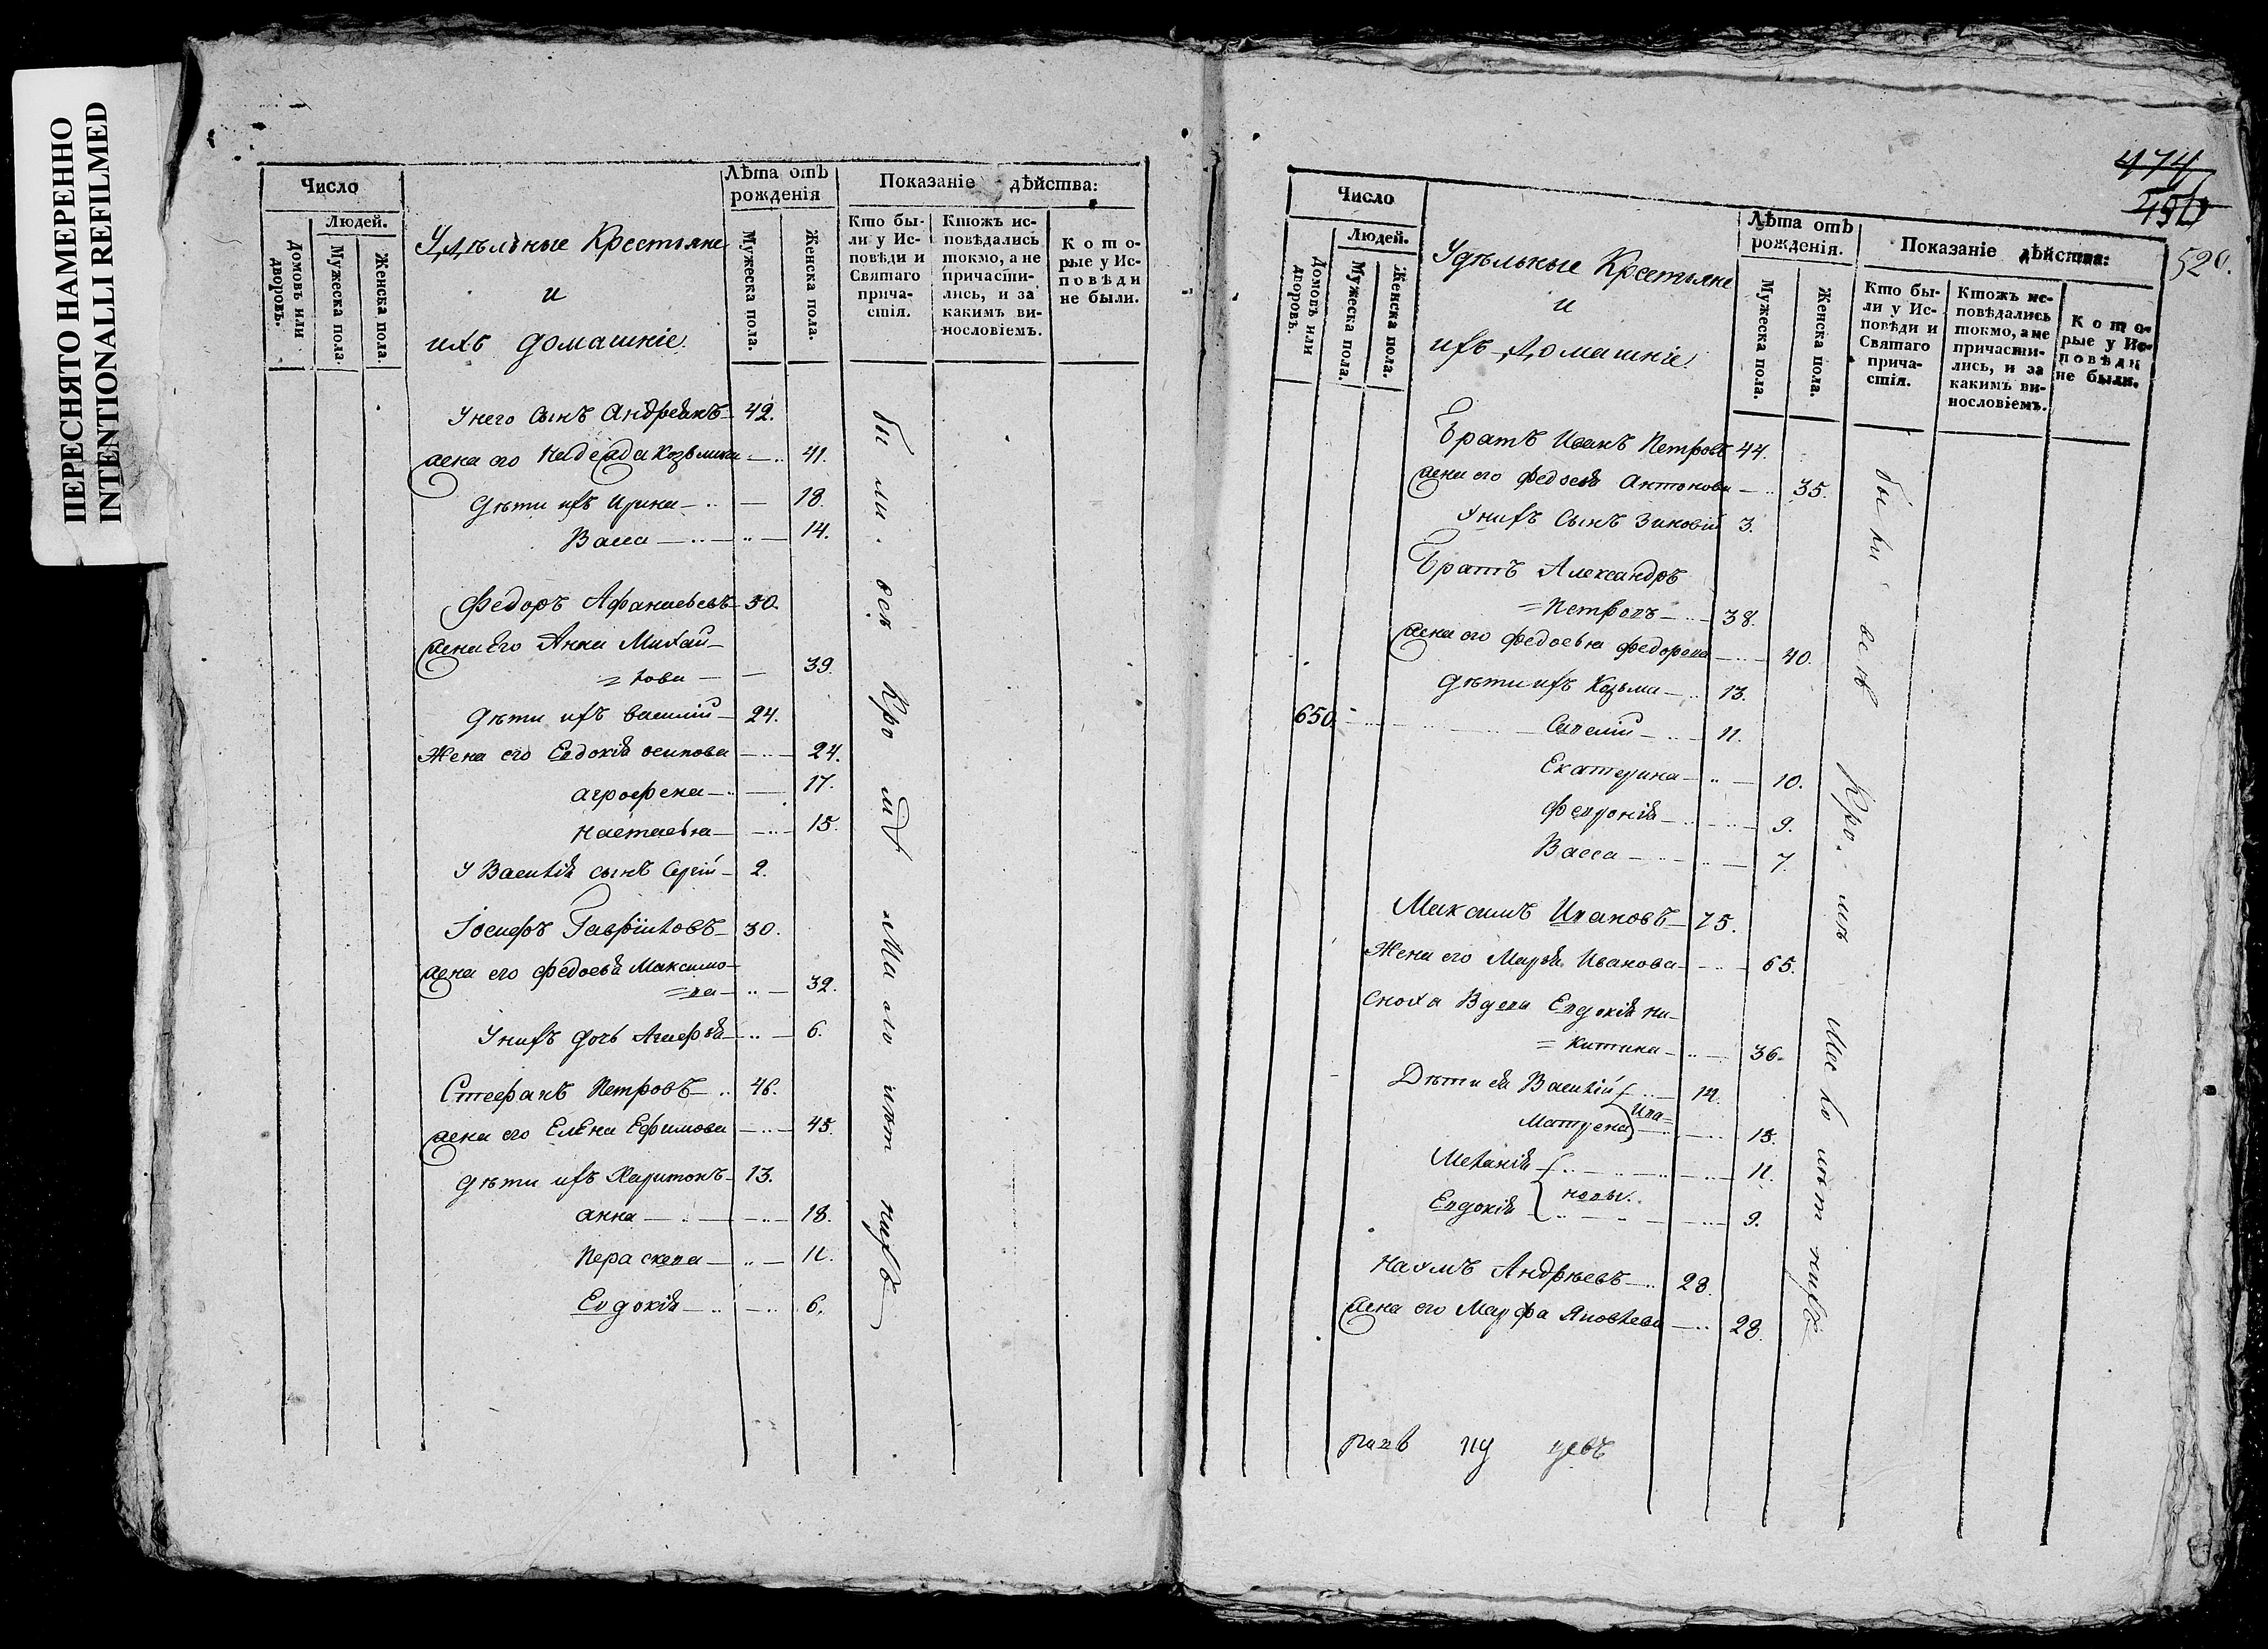 ПЕРЕСНЯТО НАМЕРЕННО
INTENTIONALLI REFILMED
Число
Людей.
Домовъ или дворовъ.
Мужеска пола.
Женска пола.
Удѣльные Крестьяне
и
ихъ домашніе
Лѣта отъ рожденія
Мужеска пола.
Женска пола.
Показаніе дѣйства:
Кто были у Исповѣди и Святаго причастія.
Ктожъ исповѣдались токмо, а не причастились, и за какимъ винословіемъ.
Которые у Исповѣди не были.
У него Сынъ Андреянъ 42.
жена его Надежда Козьмина 41.
Дѣти ихъ Ирина 18.
Васса 14.
Федоръ Афанасьевъ 50.
жена Его Анна Михай-
=лова 39.
Дѣти ихъ василій 24.
Жена его Евдокія осипова 24.
агрофена 17.
Настасья 15.
У Василія сынъ Сергій 2.
Іосифъ Гавріиловъ 30.
жена его Федосья Максимо-
=ва 32.
У нихъ дочь Агафья 6.
Стефанъ Петровъ 46.
жена его Елена Ефимова 45.
Дѣти ихъ Харитонъ 13.
анна 18.
Пераскева 11.
Евдокія 6.
бы ли всѣ Кро мѣ Ма ло лѣт нихъ
474
520.
Число
Людей.
Домовъ или дворовъ.
Мужеска пола.
Женска пола.
Удѣльные Крестьяне
и
ихъ домашніе
Лѣта отъ рожденія.
Мужеска пола.
Женска пола.
Показаніе дѣйства:
Кто были у Исповѣди и Святаго причастія.
Ктожъ исповѣдались токмо, а не причастились, и за какимъ винословіемъ.
Которые у Исповѣди не были.
Братъ Иванъ Петровъ 44.
жена его Федосья Антонова 35.
У нихъ Сынъ Зиновій 3.
Братъ Александръ
=Петровъ 38.
жена его Федосья Федорова 40.
Дѣти ихъ Козьма 13.
650. Савелій 11.
Екатерина 10.
Февронія 9.
Васса 7.
Максимъ Ивановъ 75.
Жена его Марья Иванова 65.
Сноха Вдова Евдокія Ни-
=китина 36.
Дѣти ея Василій 14.
Матрена Ива= 15.
Меланія 11.
новы.
Евдокія 9.
Наумъ Андрѣевъ 28.
жена его Марфа Яковлева 28.
бы ли всѣ Кро мѣ Ма ло лѣт нихъ